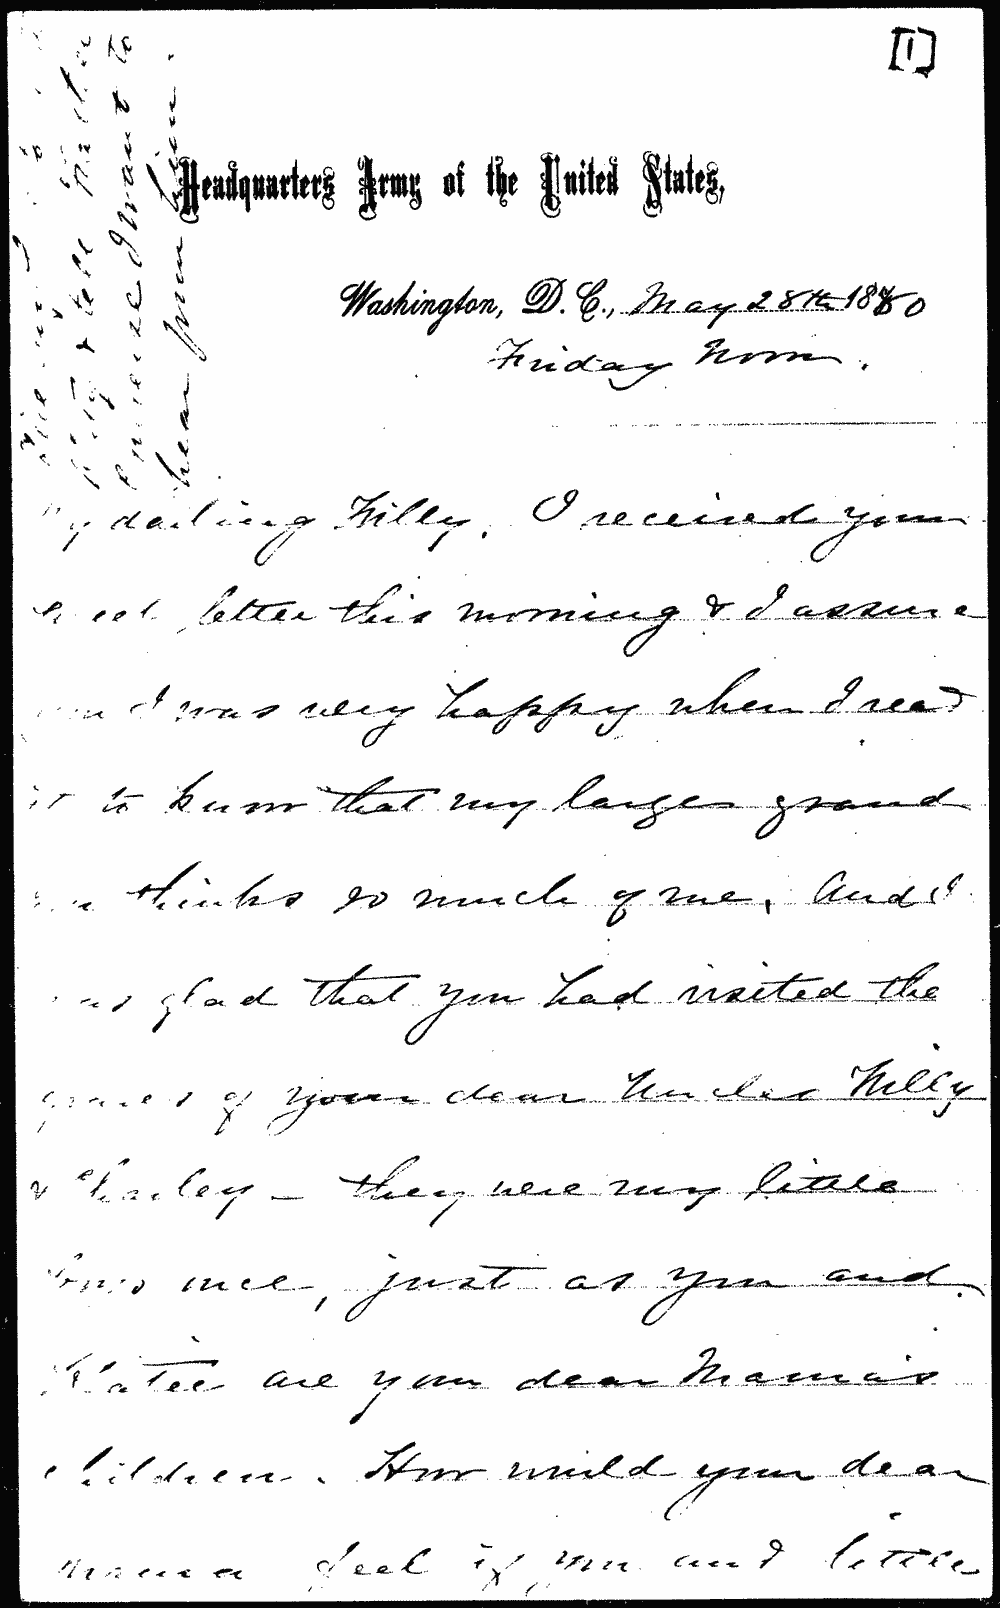 [1]
Headquarters Army of the United States,
Washington, D.C., May 28th 1880
Friday Noon.
My darling Willy, I received your
sweet letter this morning & I assure
you I was very happy when I read
it to know that my larger grand
son thinks so much of me. And I
was glad that you had visited the
graves of your dear Uncles Willy
& Charley - they were my little
boys once, just as you and
Katee are your dear Mama's
children. How would your dear
mama feel if you and little
& tell
I want to
hear from him.